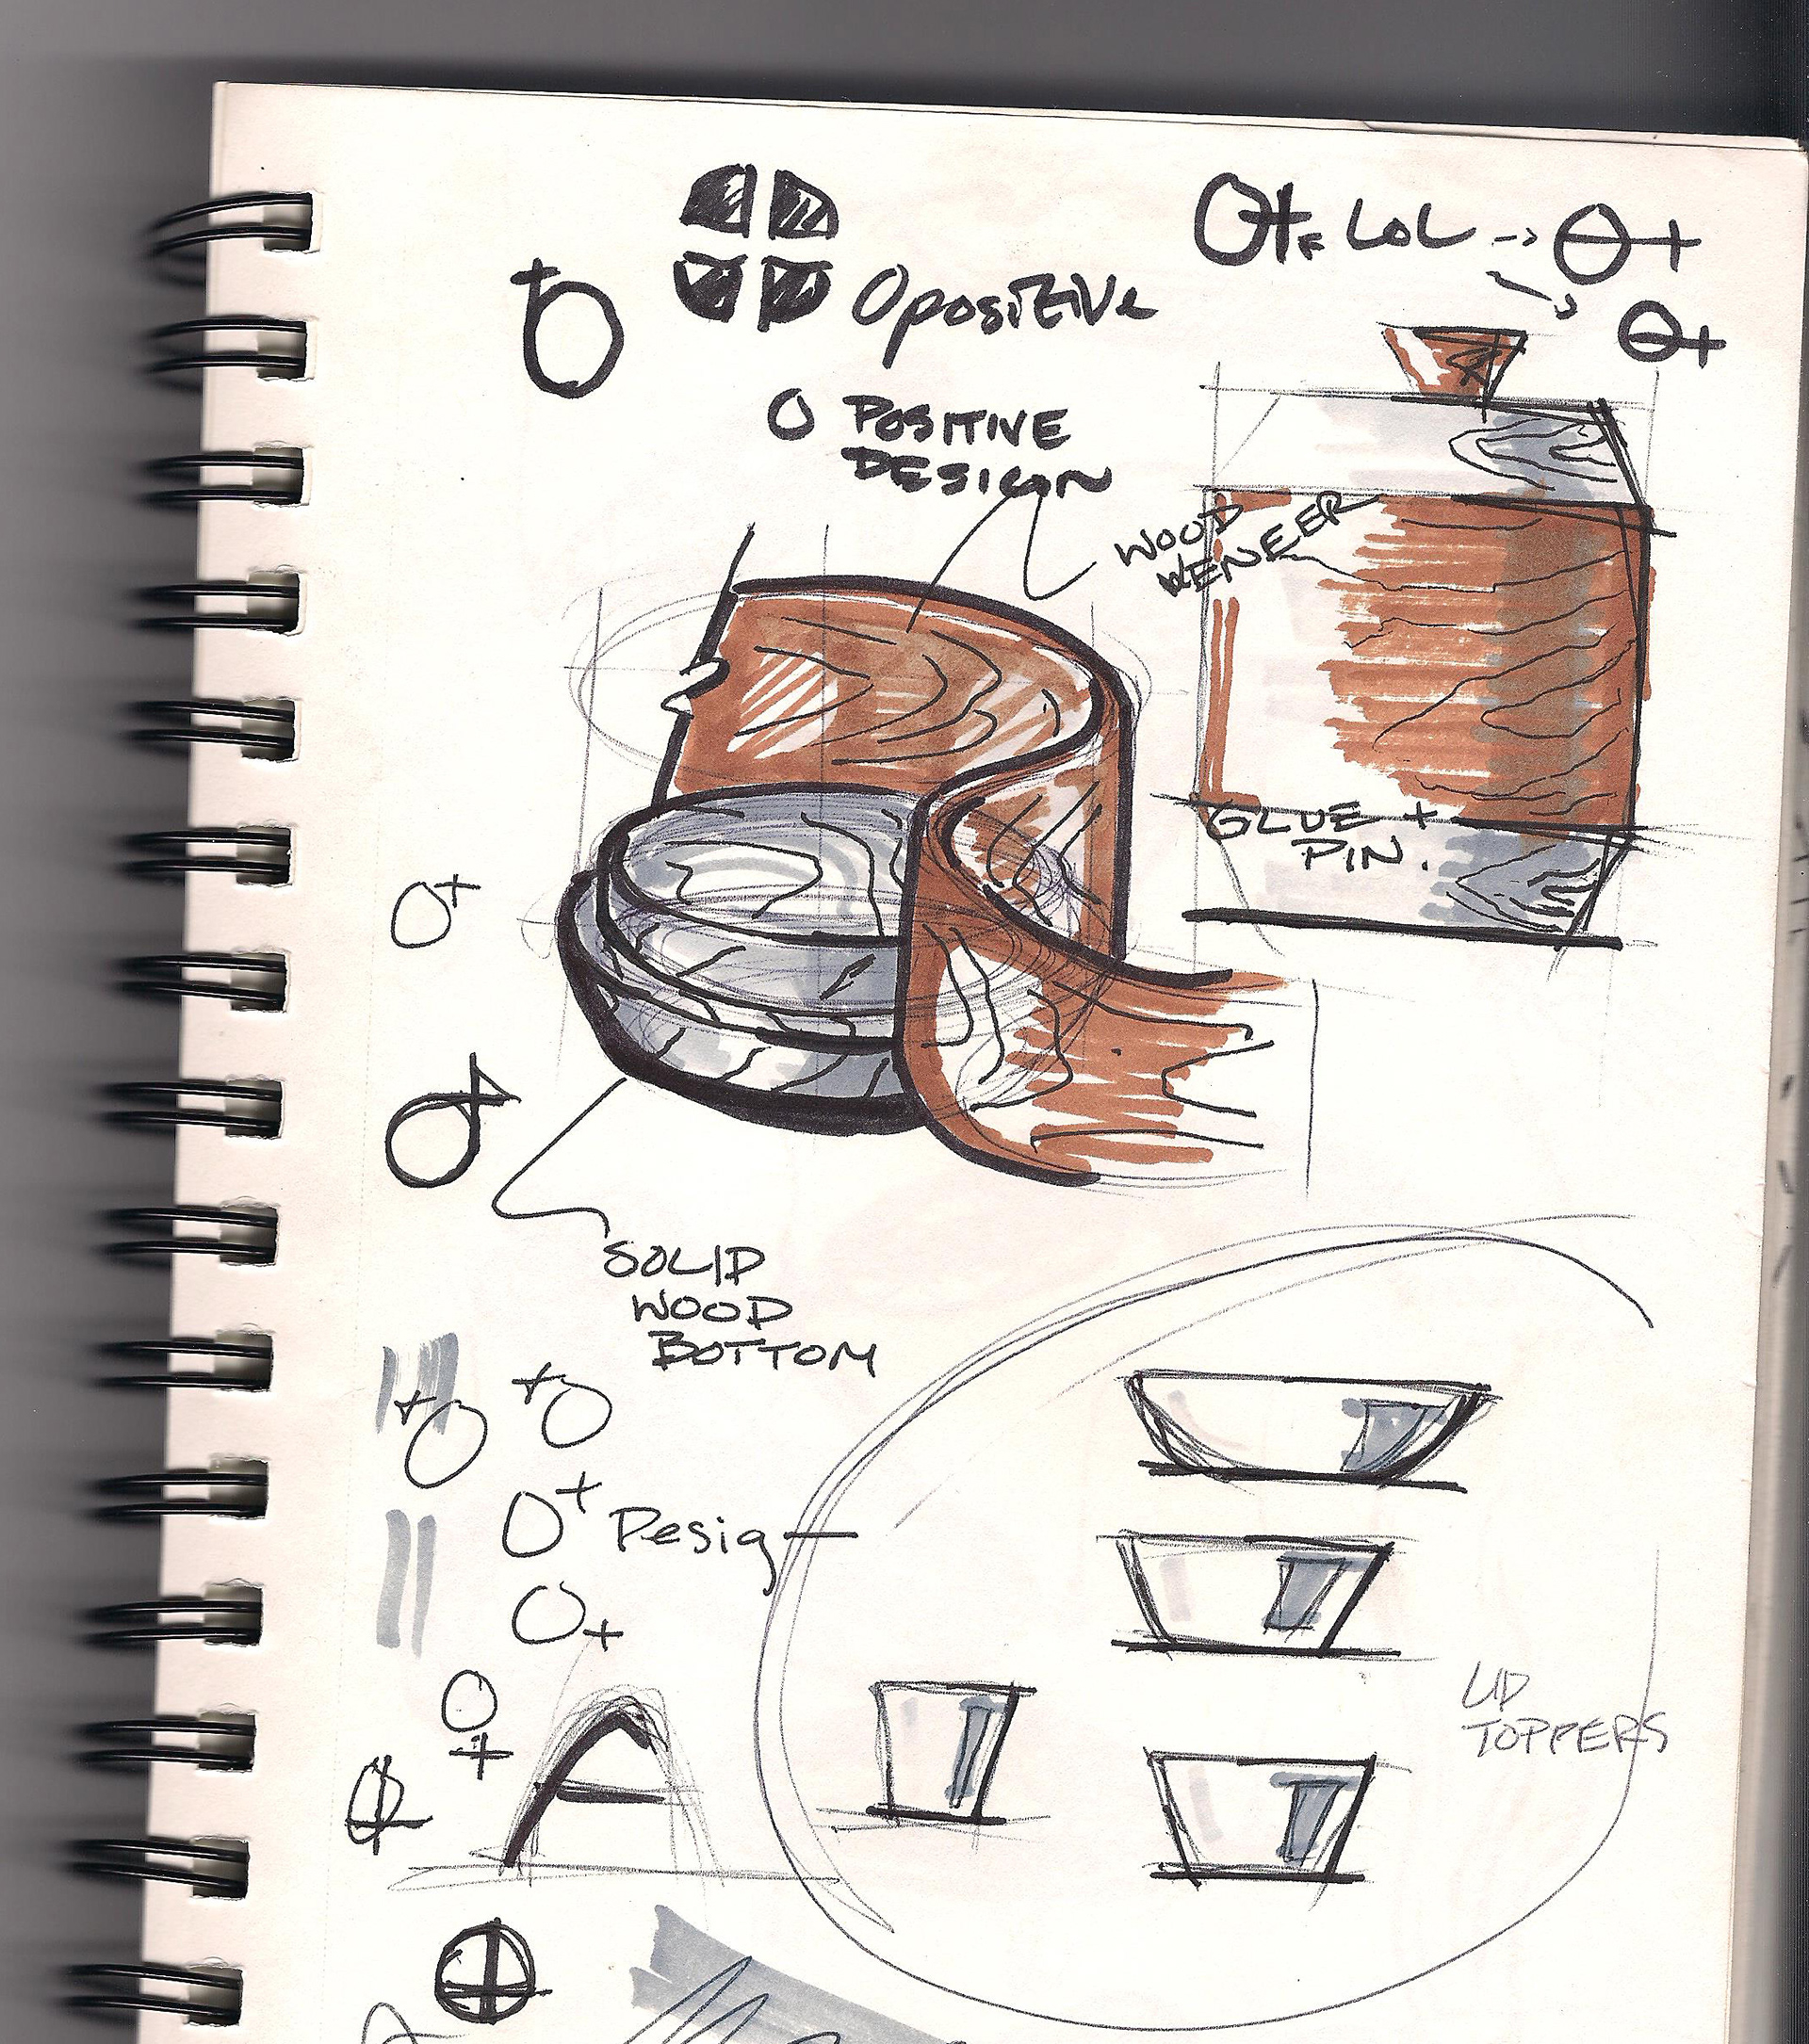 O+ = LOL → O+
O+
Opositive
O POSITIVE
DESIGN
WOOD
VENEER
GLUE +
PIN.
O+
SOLID
WOOD
BOTTOM
+O +O
O+ Desig
O+
O
+
A
LID
TOPPERS